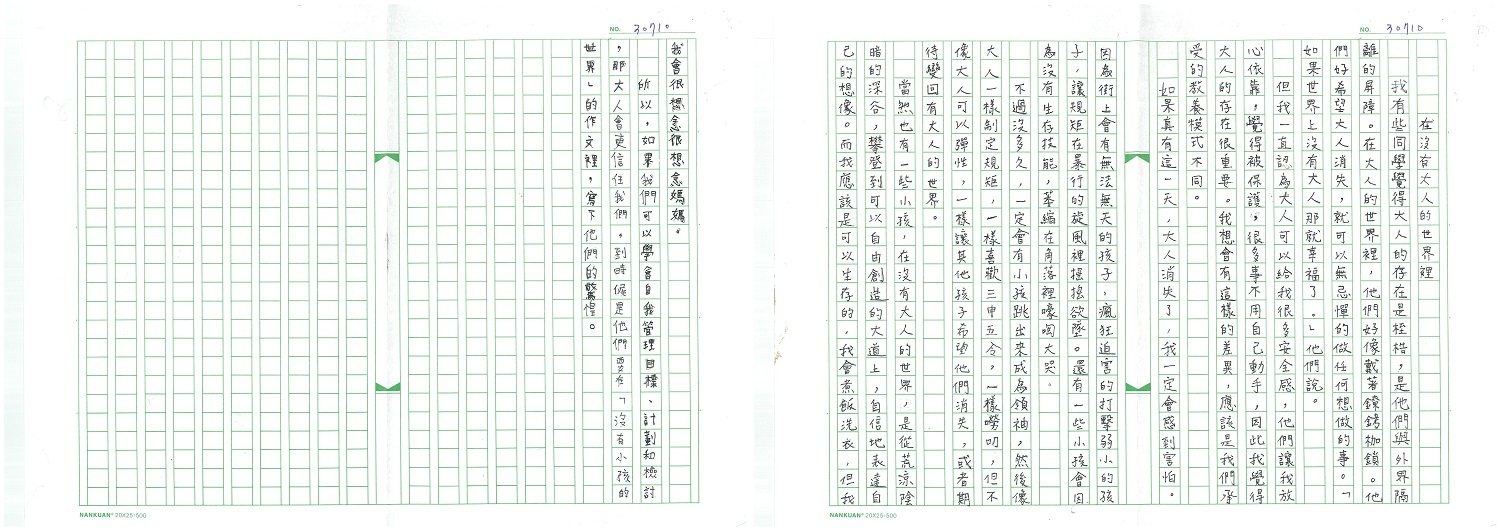 NO. 30710
在沒有大人的世界裡
我有些同學覺得大人的存在是桎梏，是他們與外界隔
離的屏障。在大人的世界裡，他們好像戴著鐐銬枷鎖。他
們好希望大人消失，就可以無忌憚的做任何想做的事。「
如果世界上沒有大人那就幸福了。」他們說。
但我一直認為大人可以給我很多安全感，他們讓我放
心依靠，覺得被保護，很多事不用自己動手，因此我覺得
大人的存在很重要。我想會有這樣的差異，應該是我們承
受的教養模式不同。
如果真有這一天，大人消失了，我一定會感到害怕。
因為街上會有無法無天的孩子，瘋狂迫害的打擊弱小的孩
子，讓規矩在暴行的旋風裡搖搖欲墜。還有一些小孩會因
為沒有生存技能，萎縮在角落裡嚎啕大哭。
不過沒多久，一定會有小孩跳出來成為領袖，然後像
大人一樣制定規矩，一樣喜歡三申五令，一樣嘮叨，但不
像大人可以彈性，一樣讓其他孩子希望他們消失，或者期
待變回有大人的世界。
當然也有一些小孩，在沒有大人的世界，是從荒涼陰
暗的深谷，攀登到可以自由創造的大道上，自信地表達自
己的想像。而我應該是可以生存的，我會煮飯洗衣，但我
NANKUAN® 20X25=500
NO. 30710
我會很想念很想念媽媽。
所以，如果我們可以學會自我管理目標、計劃和檢討
，那大人會更信任我們。到時候是他們要在「沒有小孩的
世界」的作文裡，寫下他們的驚惶。
NANKUAN® 20X25=500